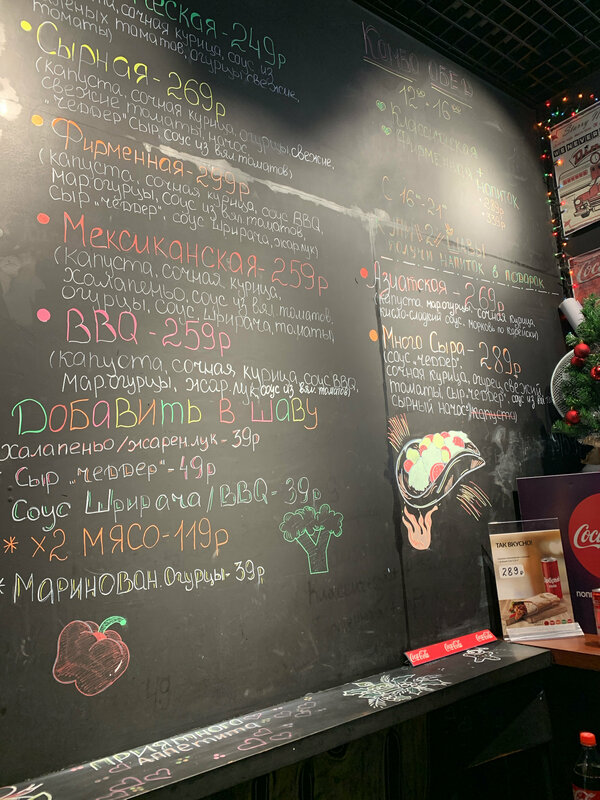 ческая - 249р
капуста, сочная курица, соус из
вяленых томатов, огурцы свежие,
томаты)
Сырная - 269р
(капуста, сочная курица, огурцы свежие,
свежие томаты, начос
"чеддер" сыр, соус из вял. томатов)
Фирменная - 299р
(капуста, сочная курица, соус BBQ,
мар.огурцы, соус из вял. томатов,
сыр "чеддер", соус Шрирача, жар.лук)
Мексиканская - 259р
(капуста, сочная курица,
халапеньо, соус из вял. томатов,
огурцы, соус Шрирача, томаты)
BBQ - 259р
(капуста, сочная курица, соус BBQ,
мар.огурцы, жар.лук, соус из вял. томатов)
Добавить в шаву
халапеньо/жарен.лук - 39р
Сыр "чеддер" - 49р
Соус Шрирача / BBQ - 39р
* x2 мясо - 119р
* Маринован. Огурцы - 39р
Приятного
Аппетита
Комбо Обед
12⁰⁰ - 16⁰⁰
Классическая
Фирменная +
напиток
С 16⁰⁰-21⁰⁰
Купи 2 шавы
получи напиток в подарок
Азиатская - 269р
(капуста, мар.огурцы, сочная курица,
кисло-сладкий соус, морковь по корейски)
Много Сыра - 289р
соус "чеддер",
сочная курица, огурец свежий,
томаты, сыр "чеддер", соус из вял.
сырный начос, капуста)
Coca-Cola Coca-Cola Coca-Cola
ТАК ВКУСНО!
289р
Coca